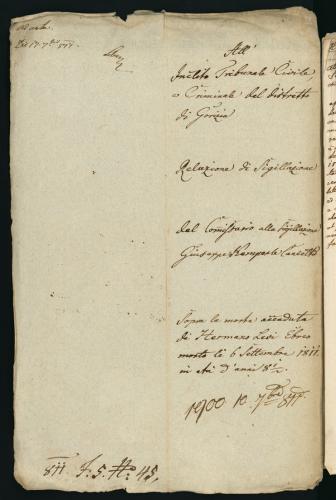 All'
Inclito Tribunale Civile,
e Criminale del distretto
di Gorizia
Relazione di Sigillazione
del Comissario alla Sigillazione
Giuseppe
Sopra la morte accaduta
di Hermano Levi Ebreo
morto lì 6 Settembre 1811
in età d'anni 81
1900 10 7bre 811
811 F. 5. No. 45,